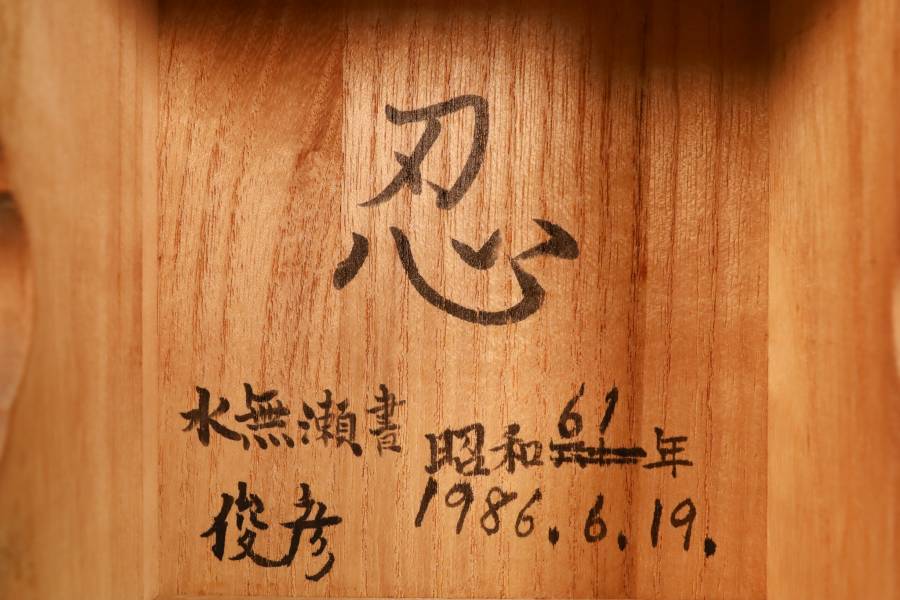 忍
水無瀬書
俊彦
昭和61年
1986.6.19.